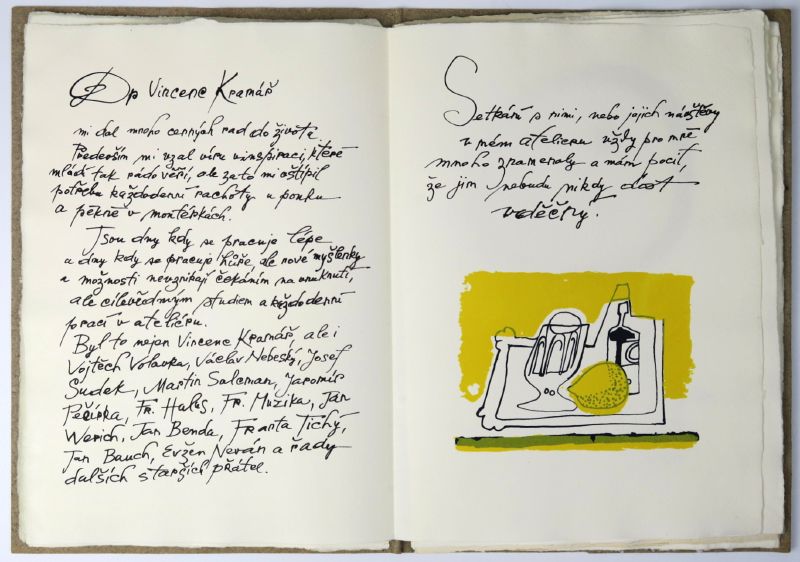 Dr Vincenc Kramář
mi dal mnoho cenných rad do života.
Především mi vzal víru v inspiraci, které
mládí tak rádo věří, ale zato mi vštípil
potřebu každodenní rachoty u ponku
a pěkně v montérkách.
Jsou dny kdy se pracuje lépe
a dny kdy se pracuje hůře ale nové myšlenky
a možnosti nevznikají čekáním na vnuknutí,
ale cílevědomým studiem a každodenní
prací v ateliéru.
Byl to nejen Vincenc Kramář, ale i
Vojtěch Volavka, Václav Nebeský, Josef
Sudek, Martin Salcman, Jaromír
Pečírka, Fr. Halas, Fr. Muzika, Jan
Werich, Jan Benda, Franta Tichý,
Jan Bauch, Evžen Neván a řady
dalších starších přátel.
Setkání s nimi, nebo jejich návštěvy
v mém atelieru vždy pro mě
mnoho znamenaly a mám pocit,
že jim nebudu nikdy dost
vděčný.